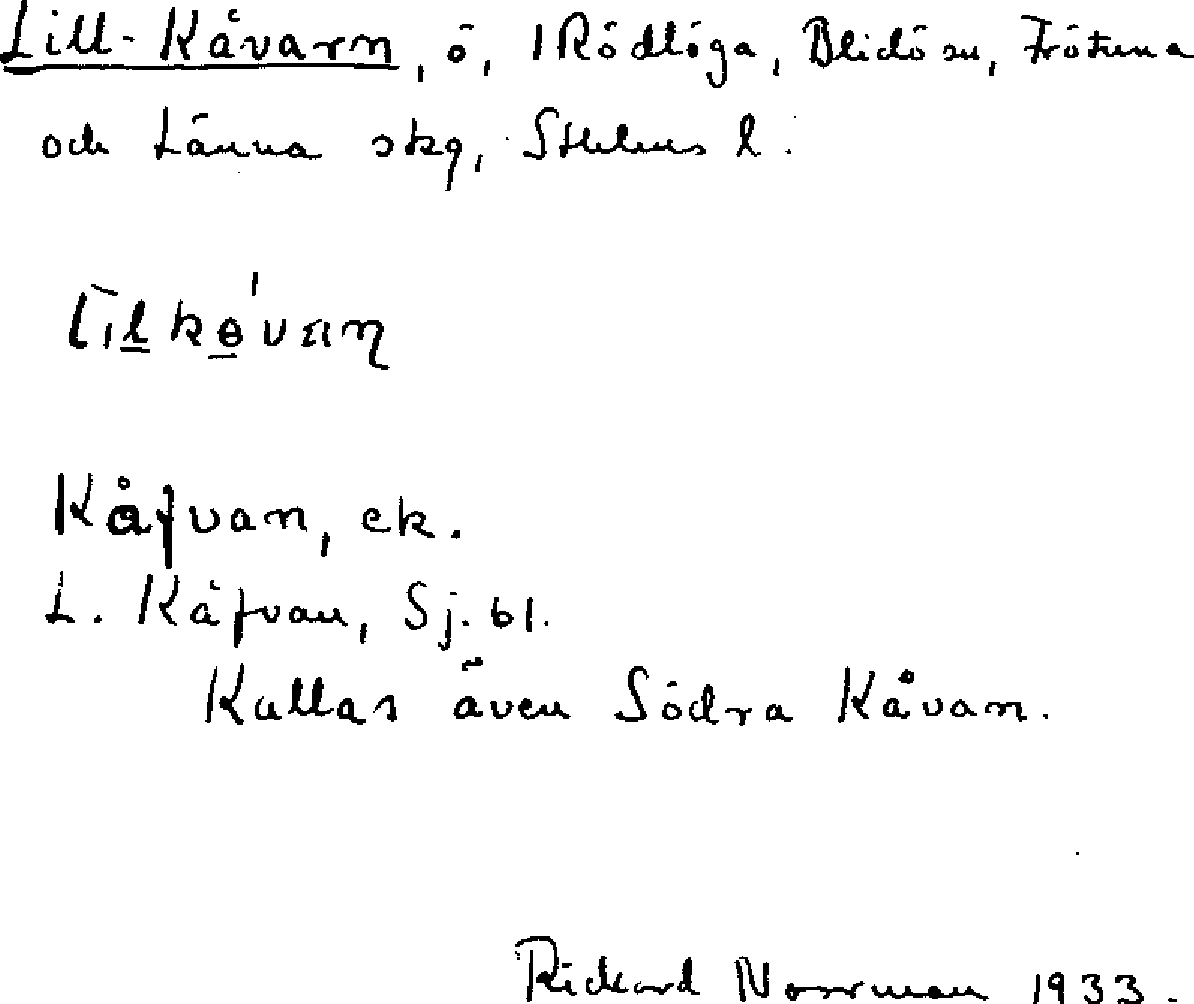 Lill-Kåvarn, ö, 1 Rödlöga, Blidö sn, Frötuna
och Länna skg, Sthlms l.
Kåfvan, ek.
L. Kåfvan, Sj. bl.
Kallas även Södra Kåvan.
Rickard Norrman 1933.